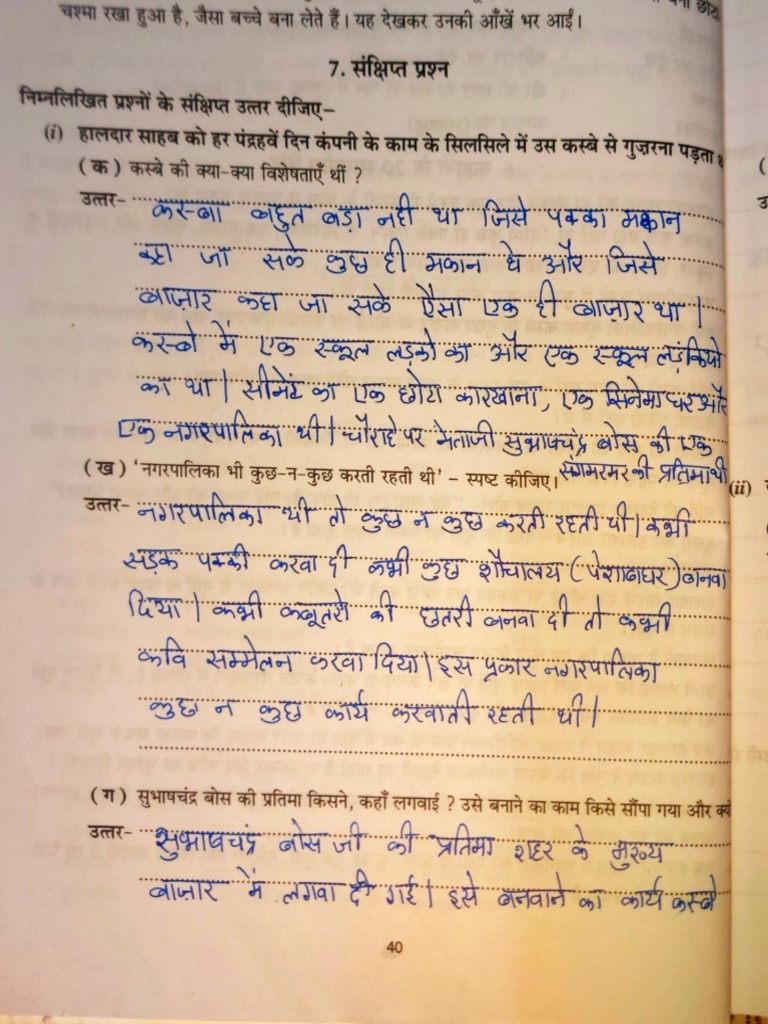 चश्मा रखा हुआ है, जैसा बच्चे बना लेते हैं। यह देखकर उनकी आँखें भर आईं।
7. संक्षिप्त प्रश्न
निम्नलिखित प्रश्नों के संक्षिप्त उत्तर दीजिए–
(i) हालदार साहब को हर पंद्रहवें दिन कंपनी के काम के सिलसिले में उस कस्बे से गुज़रना पड़ता
(क) कस्बे की क्या-क्या विशेषताएँ थीं ?
उत्तर- कस्बा बहुत बड़ा नही था जिसे पक्का मकान
कहा जा सके कुछ ही मकान थे और जिसे
बाज़ार कहा जा सके ऐसा एक ही बाज़ार था।
कस्बे में एक स्कूल लड़को का और एक स्कूल लड़कियो
का था। सीमेंट का एक छोटा कारखाना, एक सिनेमा घर और
एक नगरपालिका थी। चौराहे पर नेताजी सुभाषचंद्र बोस की एक
संगमरमर की प्रतिमा थी
(ख) 'नगरपालिका भी कुछ-न-कुछ करती रहती थी' – स्पष्ट कीजिए।
उत्तर- नगरपालिका थी तो कुछ न कुछ करती रहती थी। कभी
सड़क पक्की करवा दी कभी कुछ शौचालय (पेशाबघर) बनवा
दिया। कभी कबूतरो की छतरी बनवा दी तो कभी
कवि सम्मेलन करवा दिया। इस प्रकार नगरपालिका
कुछ न कुछ कार्य करवाती रहती थी।
(ग) सुभाषचंद्र बोस की प्रतिमा किसने, कहाँ लगवाई ? उसे बनाने का काम किसे सौंपा गया और
उत्तर- सुभाषचंद्र बोस जी की प्रतिमा शहर के मुख्य
बाज़ार में लगवा दी गई। इसे बनवाने का कार्य कस्बे
40
(ii)